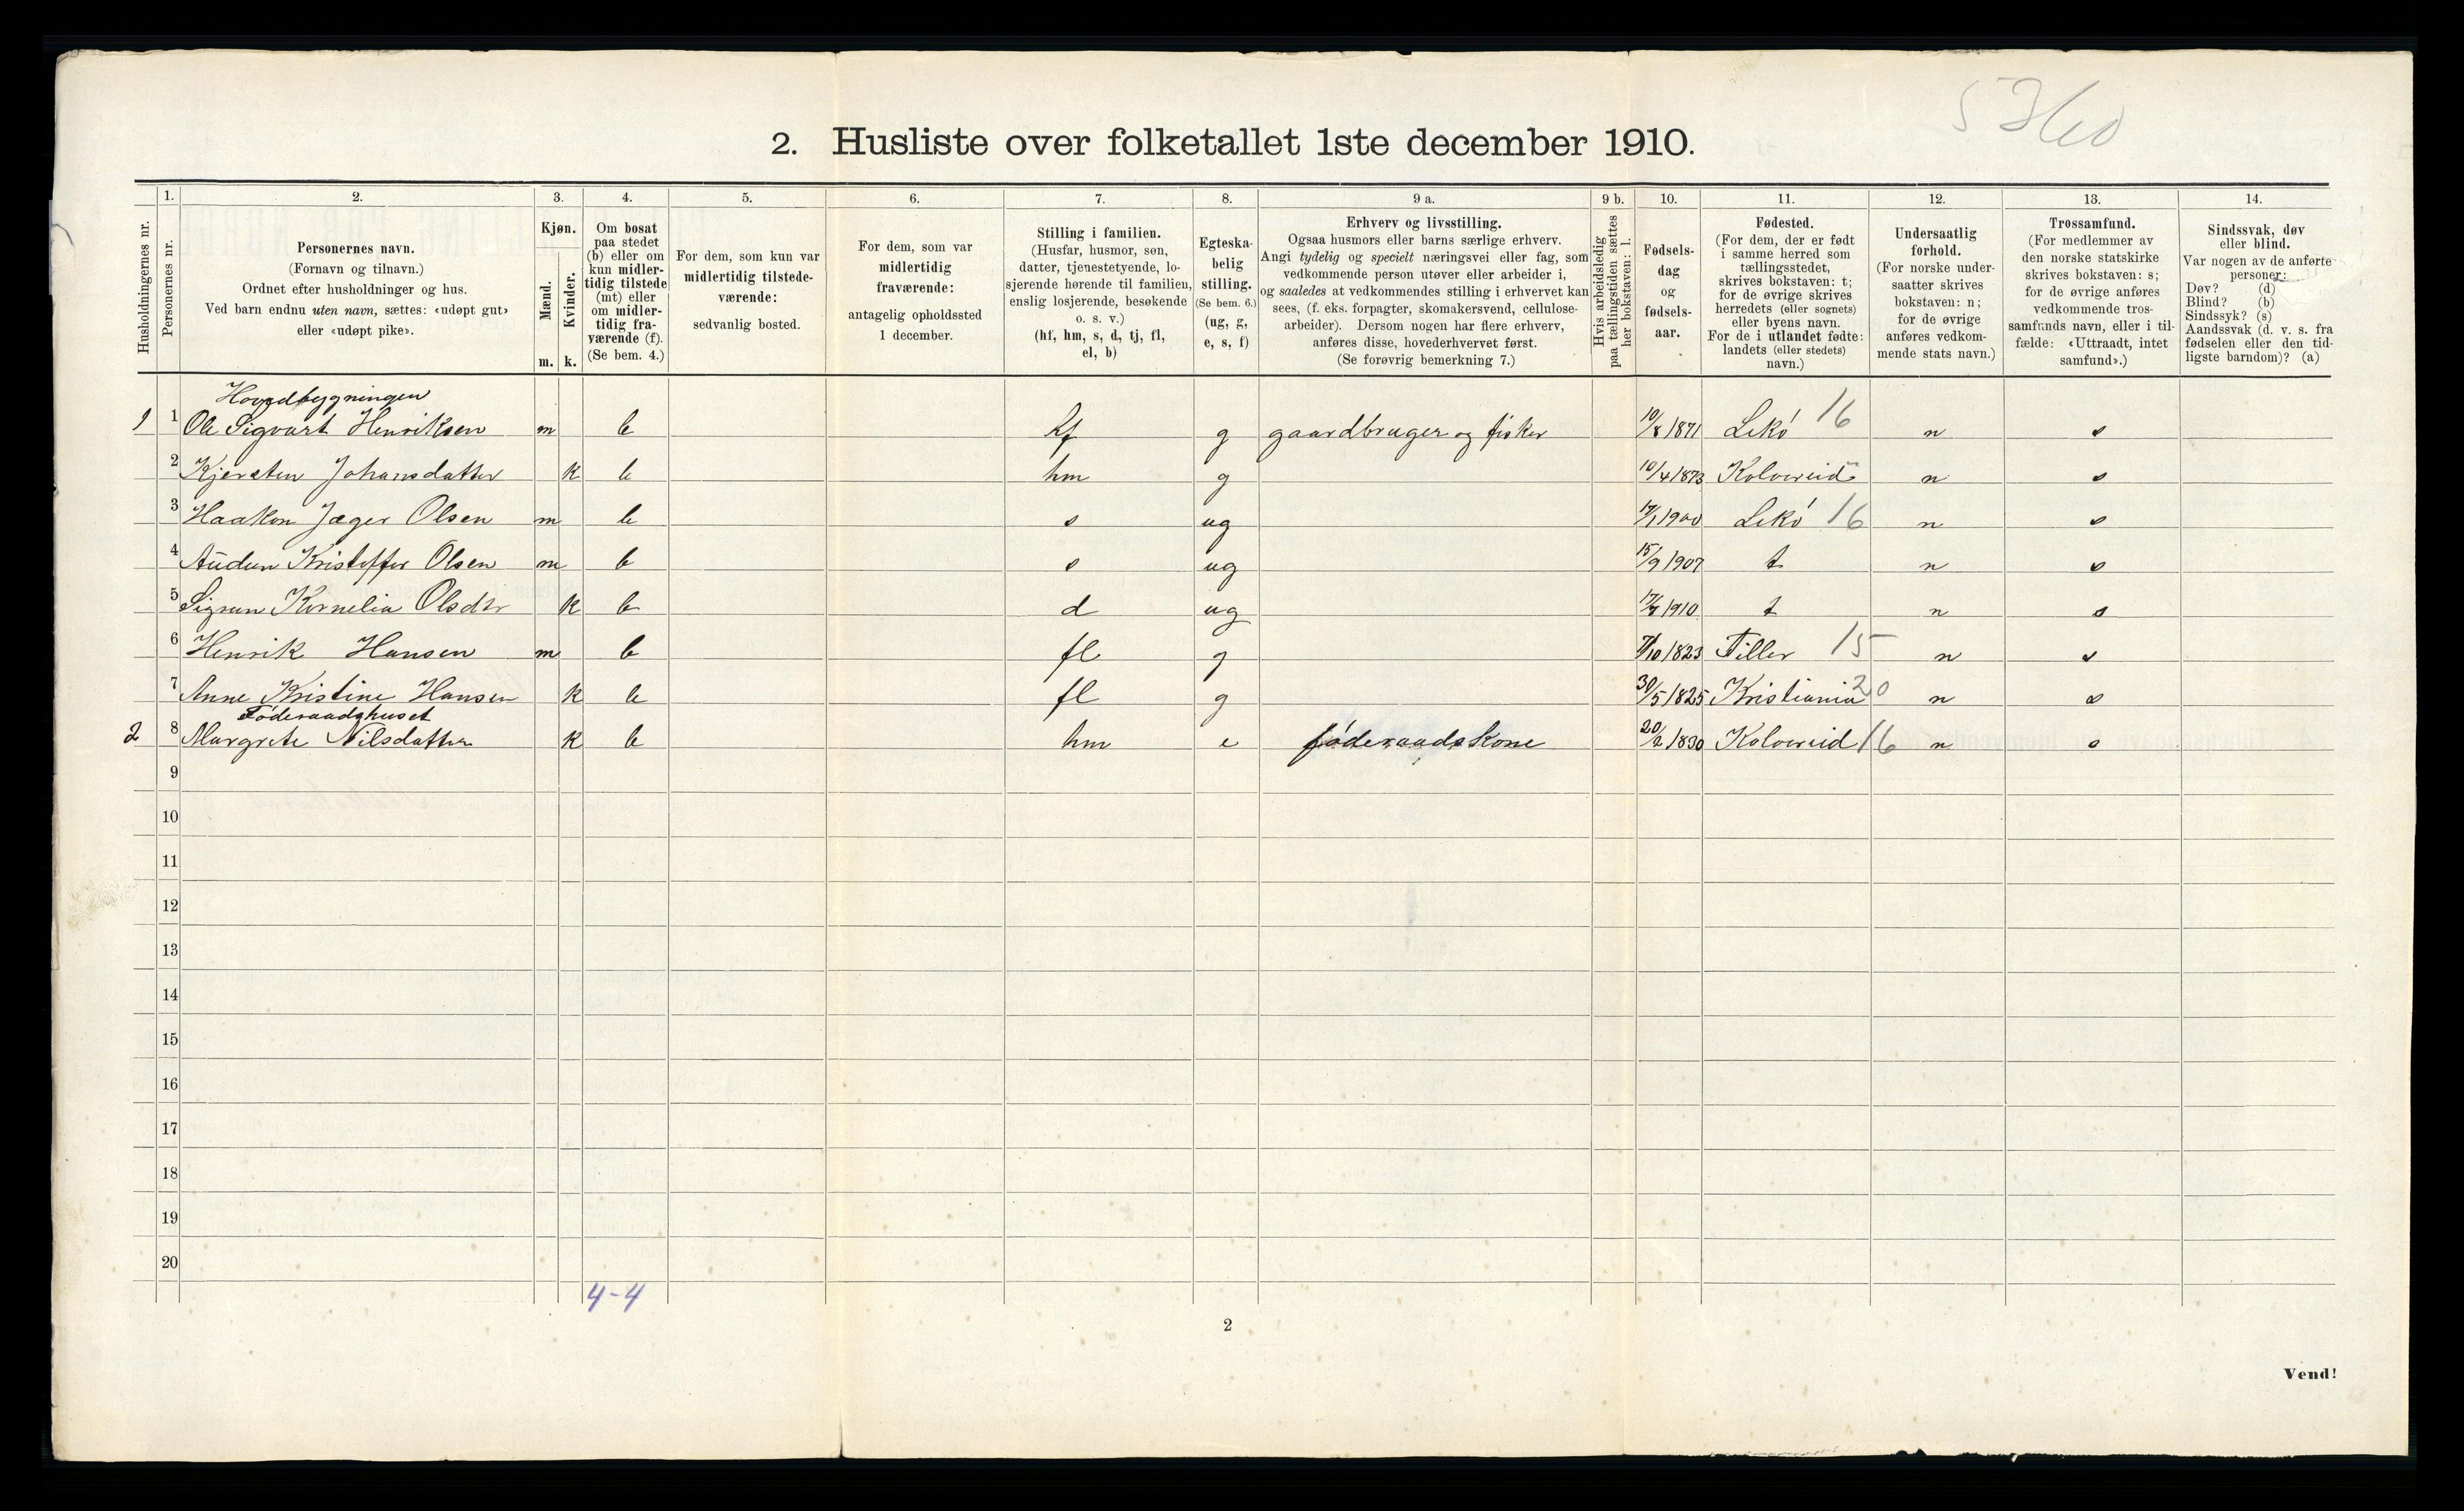 5360
2. Husliste over folketallet 1ste december 1910.
Husholdningernes nr.
1. Personernes nr.
2. Personernes navn. (Fornavn og tilnavn.) Ordnet efter husholdninger og hus. Ved barn endnu uten navn, sættes: «udøpt gut» eller «udøpt pike».
3. Kjøn. Mænd. m. Kvinder. k.
4. Om bosat paa stedet (b) eller om kun midlertidig tilstede (mt) eller om midlertidig fraværende (f). (Se bem. 4.)
5. For dem, som kun var midlertidig tilstedeværende: sedvanlig bosted.
6. For dem, som var midlertidig fraværende: antagelig opholdssted 1 december.
7. Stilling i familien. (Husfar, husmor, søn, datter, tjenestetyende, losjerende hørende til familien, enslig losjerende, besøkende o. s. v.) (hf, hm, s, d, tj, fl, el, b)
8. Egteskabelig stilling. (Se bem. 6.) (ug, g, e, s, f)
9 a. Erhverv og livsstilling. Ogsaa husmors eller barns særlige erhverv. Angi tydelig og specielt næringsvei eller fag, som vedkommende person utøver eller arbeider i, og saaledes at vedkommendes stilling i erhvervet kan sees, (f. eks. forpagter, skomakersvend, cellulosearbeider). Dersom nogen har flere erhverv, anføres disse, hovederhvervet først. (Se forøvrig bemerkning 7.)
9 b. Hvis arbeidsledig paa tællingstiden sættes her bokstaven: l.
10. Fødselsdag og fødselsaar.
11. Fødested. (For dem, der er født i samme herred som tællingsstedet, skrives bokstaven: t; for de øvrige skrives herredets (eller sognets) eller byens navn. For de i utlandet fødte: landets (eller stedets) navn.)
12. Undersaatlig forhold. (For norske undersaatter skrives bokstaven: n; for de øvrige anføres vedkommende stats navn.)
13. Trossamfund. (For medlemmer av den norske statskirke skrives bokstaven: s; for de øvrige anføres vedkommende trossamfunds navn, eller i tilfælde: «Uttraadt, intet samfund».)
14. Sindssvak, døv eller blind. Var nogen av de anførte personer: Døv? (d) Blind? (b) Sindssyk? (s) Aandssvak (d. v. s. fra fødselen eller den tidligste barndom)? (a)
Hovedbygningen
1 1 Ole Sigvart Henriksen m b hf g gaardbruger og fisker 10/8 1871 Lekö 16 n s
2 Kjersten Johansdatter k b hm g 10/4 1873 Kolvereid n s
3 Haakon Jæger Olsen m b s ug 17/1 1900 Lekö 16 n s
4 Audun Kristoffer Olsen m b s ug 15/9 1907 t n s
5 Sigrun Kornelia Olsdtr k b d ug 17/7 1910 t n s
6 Henrik Hansen m b fl g 7/10 1823 Tiller 15 n s
7 Anne Kristine Hansen k b fl g 30/5 1825 Kristiania 20 n s
Föderaadshuset
2 8 Margrete Nilsdatter k b hm e föderaadskone 20/2 1830 Kolvereid 16 n s
9
10
11
12
13
14
15
16
17
18
19
20
4-4
2
Vend!